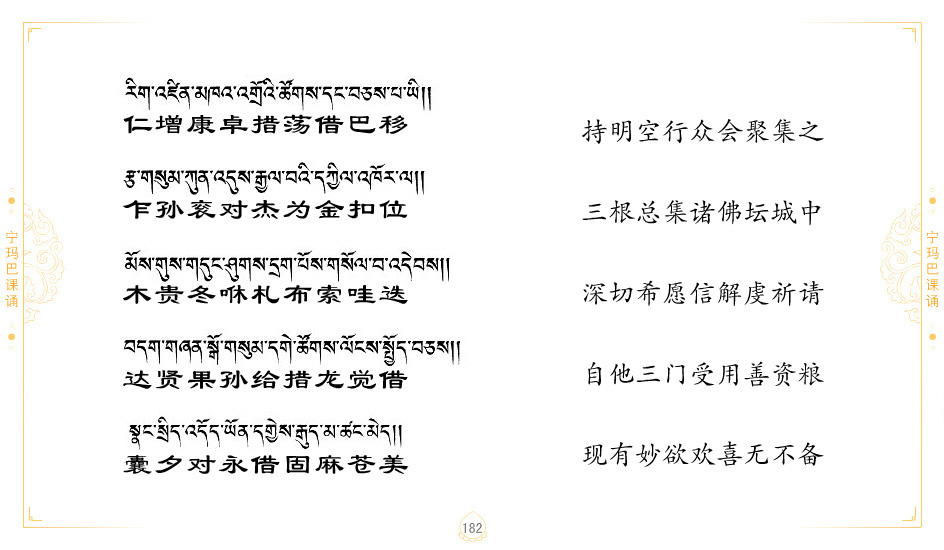 རིག་འཛིན་མཁའ་འགྲོའི་ཚོགས་དང་བཅས་པ་ཡི།།
仁增康卓措荡借巴移
持明空行众会聚集之
རྩ་གསུམ་ཀུན་འདུས་རྒྱལ་བའི་དཀྱིལ་འཁོར་ལ།།
乍孙衮对杰为金扣位
三根总集诸佛坛城中
མོས་གུས་གདུང་ཤུགས་དྲག་པོས་གསོལ་བ་འདེབས།།
木贵冬咻札布索哇迭
深切希愿信解虔祈请
བདག་གཞན་སྒོ་གསུམ་དགེ་ཚོགས་ལོངས་སྤྱོད་བཅས།།
达贤果孙给措龙觉借
自他三门受用善资粮
སྣང་སྲིད་འདོད་ཡོན་དགྱེས་རྒུད་མ་ཚང་མེད།།
囊夕对永借固麻苍美
现有妙欲欢喜无不备
宁玛巴课诵
宁玛巴课诵
182